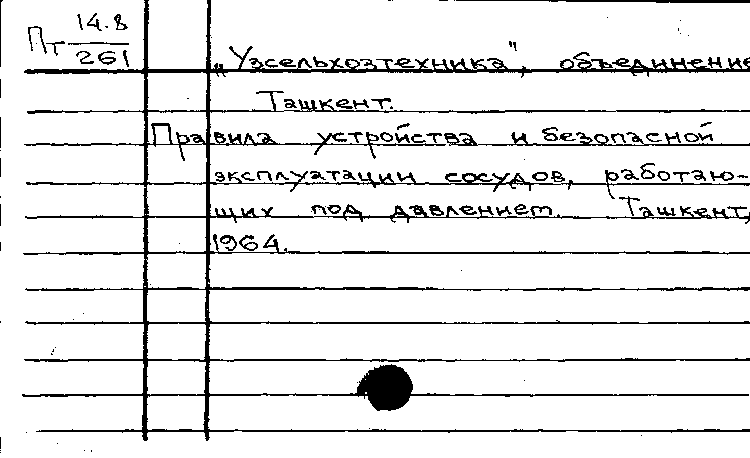 Пт 14.8/261
„Узсельхозтехника", объединение
Ташкент.
Правила устройства и безопасной
эксплуатации сосудов, работаю-
щих под давлением. Ташкент,
1964.